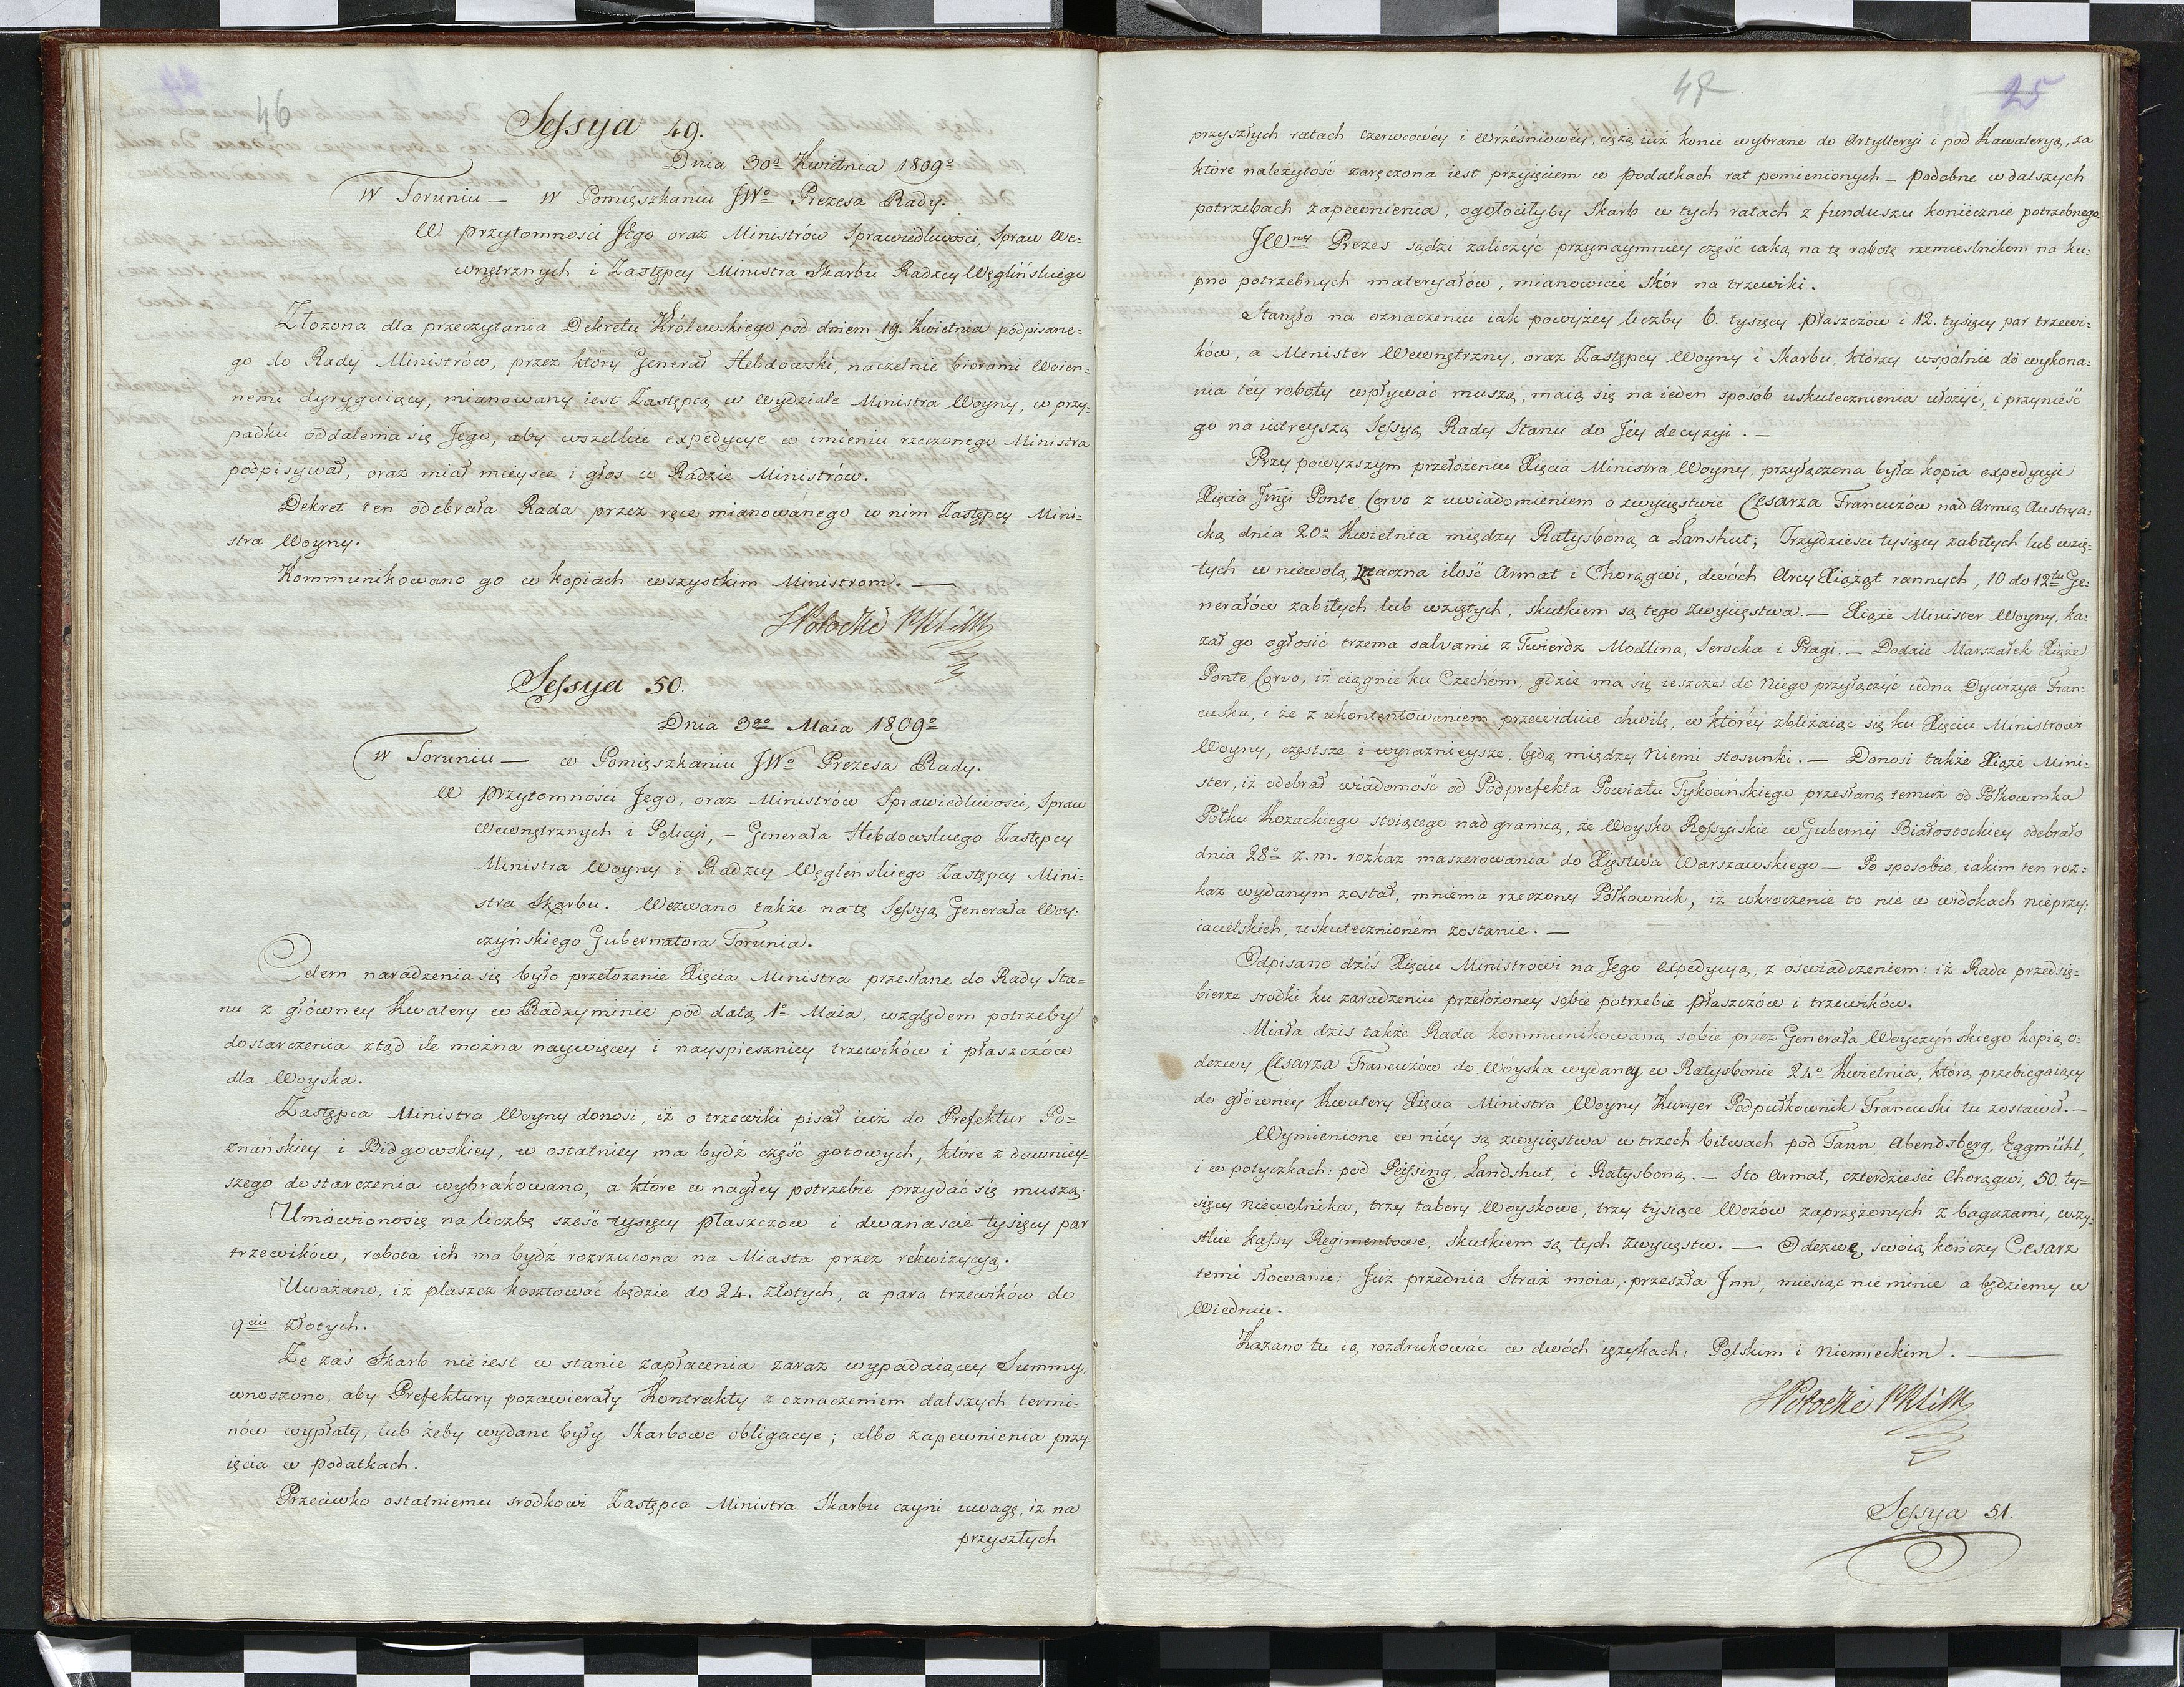 46
Sessya 49.
Dnia 30º Kwietnia 1809º
W Toruniu — W Pomięszkaniu JWº Prezesa Rady.
W przytomnosci Jego oraz Ministrów Sprawiedliwości, Spraw We=
wnętrznych i Zastępcy Ministra Skarbu Radzcy Węglińskiego
Złożona dla przeczytania Dekretu Królewskiego pod dniem 19. Kwietnia podpisane=
go do Rady Ministrów, przez który Generał Hebdowski, naczelnie biorami Woien=
nemi dyryguiący, mianowany iest Zastępcą w Wydziale Ministra Woyny, w przy=
padku oddalenia się Jego, aby wszelkie expedycye w imieniu rzeczonego Ministra
podpisywał, oraz miał mieysce i głos w Radzie Ministrów.
Dekret ten odebrała Rada przez ręce mianowanego w nim Zastępcy Mini=
stra Woyny.
Kommunikowano go w kopiach wszystkim Ministrom. —
Sessya 50.
Dnia 3go Maia 1809º
W Toruniu — w Pomięszkaniu JWº Prezesa Rady.
W przytomności Jego, oraz Ministrów Sprawiedliwości, Spraw
Wewnętrznych i Policyi, — Generała Hebdowskiego Zastępcy
Ministra Woyny i Radzcy Węgleńskiego Zastępcy Mini=
stra Skarbu. Wezwano także na tę Sessyą Generała Woy=
czyńskiego Gubernatora Torunia.
Celem naradzenia się było przełożenie Xięcia Ministra przesłane do Rady Sta=
nu z główney Kwatery w Radzyminie pod datą 1º Maia, względem potrzeby
dostarczenia ztąd ile można naywięcey i nayspieszniey trzewików i płaszczów
dla Woyska.
Zastępca Ministra Woyny donosi, iż o trzewiki pisał iuż do Prefektur Po=
znańskiey i Bidgowskiey, w ostatniey ma bydź część gotowych, które z dawniey=
szego dostarczenia wybrakowano, a które w nagłey potrzebie przydać się muszą.
Umówiono się na liczbę sześć tysięcy płaszczów i dwanascie tysięcy par
trzewików, robota ich ma bydź rozrzucona na Miasta przez rekwizycyą.
Uważano, iż płaszcz kosztować będzie do 24. złotych, a para trzewików do
9ciu złotych.
Ze zaś Skarb nie iest w stanie zapłacenia zaraz wypadaiącey Summy,
wnoszono, aby Prefektury pozawierały Kontrakty z oznaczeniem dalszych termi=
nów wypłaty, lub żeby wydane były Skarbowe obligacye; albo zapewnienia przy=
ięcia w podatkach.
Przeciwko ostatniemu srodkowi Zastępca Ministra Skarbu czyni uwagę, iż na
przyszłych
25
przyszłych ratach Czerwcowéy i Wrześniowéy, ciężą iuż konie wybrane do Artylleryi i pod Kawaleryą, za
które należytość zaręczona iest przyięciem w podatkach rat pomienionych — podobne w dalszych
potrzebach zapewnienia, ogołociłyby Skarb w tych ratach z funduszu koniecznie potrzebnego.
JWny Prezes sądzi zaliczyć przynaymniey część iaką na tę robotę rzemieslnikom na ku=
pno potrzebnych materyałów, mianowicie skór na trzewiki.
Stanęło na oznaczeniu iak powyżey liczby 6. tysięcy płaszczów i 12. tysięcy par trzewi=
ków, a Minister Wewnętrzny, oraz Zastępcy Woyny i Skarbu, którzy wspólnie do wykona=
nia téy roboty wpływać muszą, maią się na ieden sposób uskutecznienia ułożyć, i przynieść
go na iutreyszą Sessyą Rady Stanu do Jéy decyzyi. —
Przy powyższym przełożeniu Xięcia Ministra Woyny, przyłączona była kopia expedycyi
Xięcia Jmgi Ponte Corvo z uwiadomieniem o zwycięstwie Cesarza Francuzów nad Armią Austrya=
cką dnia 20º Kwietnia między Ratysboną a Lanshut; Trzydzieści tysięcy zabitych lub wzię=
tych w niewolą, znaczna ilość Armat i Chorągwi, dwóch Arcy Xiążąt rannych, 10 do 12tu Ge=
nerałów zabitych lub wziętych, skutkiem są tego zwycięstwa. — Xiąże Minister Woyny, ka=
zał go ogłosić trzema salvami z Twierdz Modlina, Serocka i Pragi. — Dodaie Marszałek Xiąże
Ponte Corvo, iż ciągnie ku Czechóm, gdzie ma się ieszcze do Niego przyłączyć iedna Dywizya Fran=
cuska, i że z ukontentowaniem przewiduie chwilę, w którey zbliżaiąc się ku Xięciu Ministrowi
Woyny, częstsze i wyraznieysze, będą między Niemi stosunki. — Donosi także Xiąże Mini=
ster, iż odebrał wiadomość od Podprefekta Powiatu Tykocińskiego przesłaną temuz od Półkownika
Półku Kozackiego stoiącego nad granicą, że Woysko Rossyiskie w Gubernij Białostockiey odebrało
dnia 28º z. m. rozkaz maszerowania do Xięstwa Warszawskiego — Po sposobie, iakim ten roz=
kaz wydanym został, mniema rzeczony Półkownik, iż wkroczenie to nie w widokach nieprzy=
iacielskich, uskutecznioném zostanie. —
Odpisano dziś Xięciu Ministrowi na Jego expedycyą, z oswiadczeniem: iż Rada przedsię=
bierze srodki ku zaradzeniu przełożoney sobie potrzebie płaszczów i trzewików.
Miała dzis także Rada kommunikowaną sobie przez Generała Woyczyńskiego kopią o=
dezwy Cesarza Francuzów do Wóyska wydaney w Ratysbonie 24º Kwietnia, którą przebiegaiący
do głównéy Kwatery Xięcia Ministra Woyny Kuryer Podpułkownik Francuski tu zostawił. —
Wymienione w niéy są zwycięstwa w trzech bitwach pod Tann, Abendsberg, Eggmühl,
i w potyczkach: pod Peissing, Landshut, i Ratysboną. — Sto Armat, czterdzieści Chorągwi, 50. ty=
sięcy niewolnika, trzy tabory Woyskowe, trzy tysiące Wozów zaprzężonych z bagażami, wszy=
stkie kassy Regimentowe, skutkiem są tych zwycięstw. — Odezwę swoią kończy Cesarz
temi słowami: Już przednia Straż moia, przeszła Jnn, miesiąc nie minie a będziemy w
Wiedniu.
Kazano tu ią rozdrukować w dwóch ięzykach: Polskim i Niemieckim. —
Sessya 51.